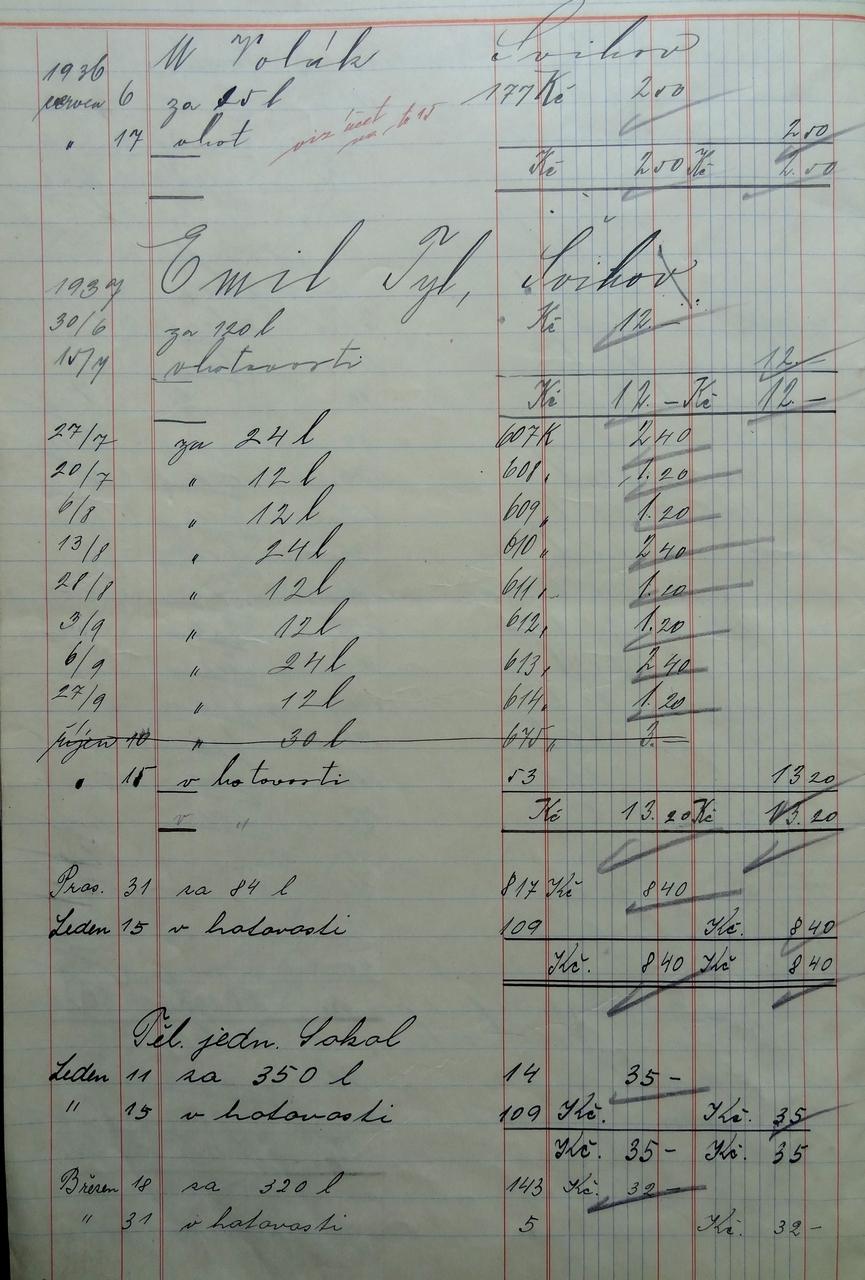 W Volák Švihov
1936
červen 6 za 25 l 177 Kč 2 50
" 17 vhot viz účet na 615 2 50
Kč 2 50 Kč 2.50
Emil Tyl, Švihov
1937
30/6 za 120 l Kč 12.—
15/7 vhotovosti 12.—
Kč 12.— Kč 12.—
27/7 za 24 l 607 K 2 40
20/7 " 12 l 608 " 1.20
6/8 " 12 l 609 " 1.20
13/8 " 24 l 610 " 2 40
28/8 " 12 l 611 " 1.20
3/9 " 12 l 612 " 1.20
6/9 " 24 l 613 " 2 40
27/9 " 12 l 614 " 1.20
říjen 10 " 30 l 675 " 3.—
" 15 v hotovosti 53 13 20
v " Kč 13.20 Kč 13.20
Pros. 31 za 84 l 817 Kč 8 40
Leden 15 v hotovosti 109 Kč. 8 40
Kč. 8 40 Kč 8 40
Těl. jedn. Sokol
Leden 11 za 350 l 14 35 –
" 15 v hotovosti 109 Kč. Kč. 35
Kč. 35 – Kč. 35
Březen 18 za 320 l 143 Kč. 32 –
" 31 v hotovosti 5 Kč. 32 –